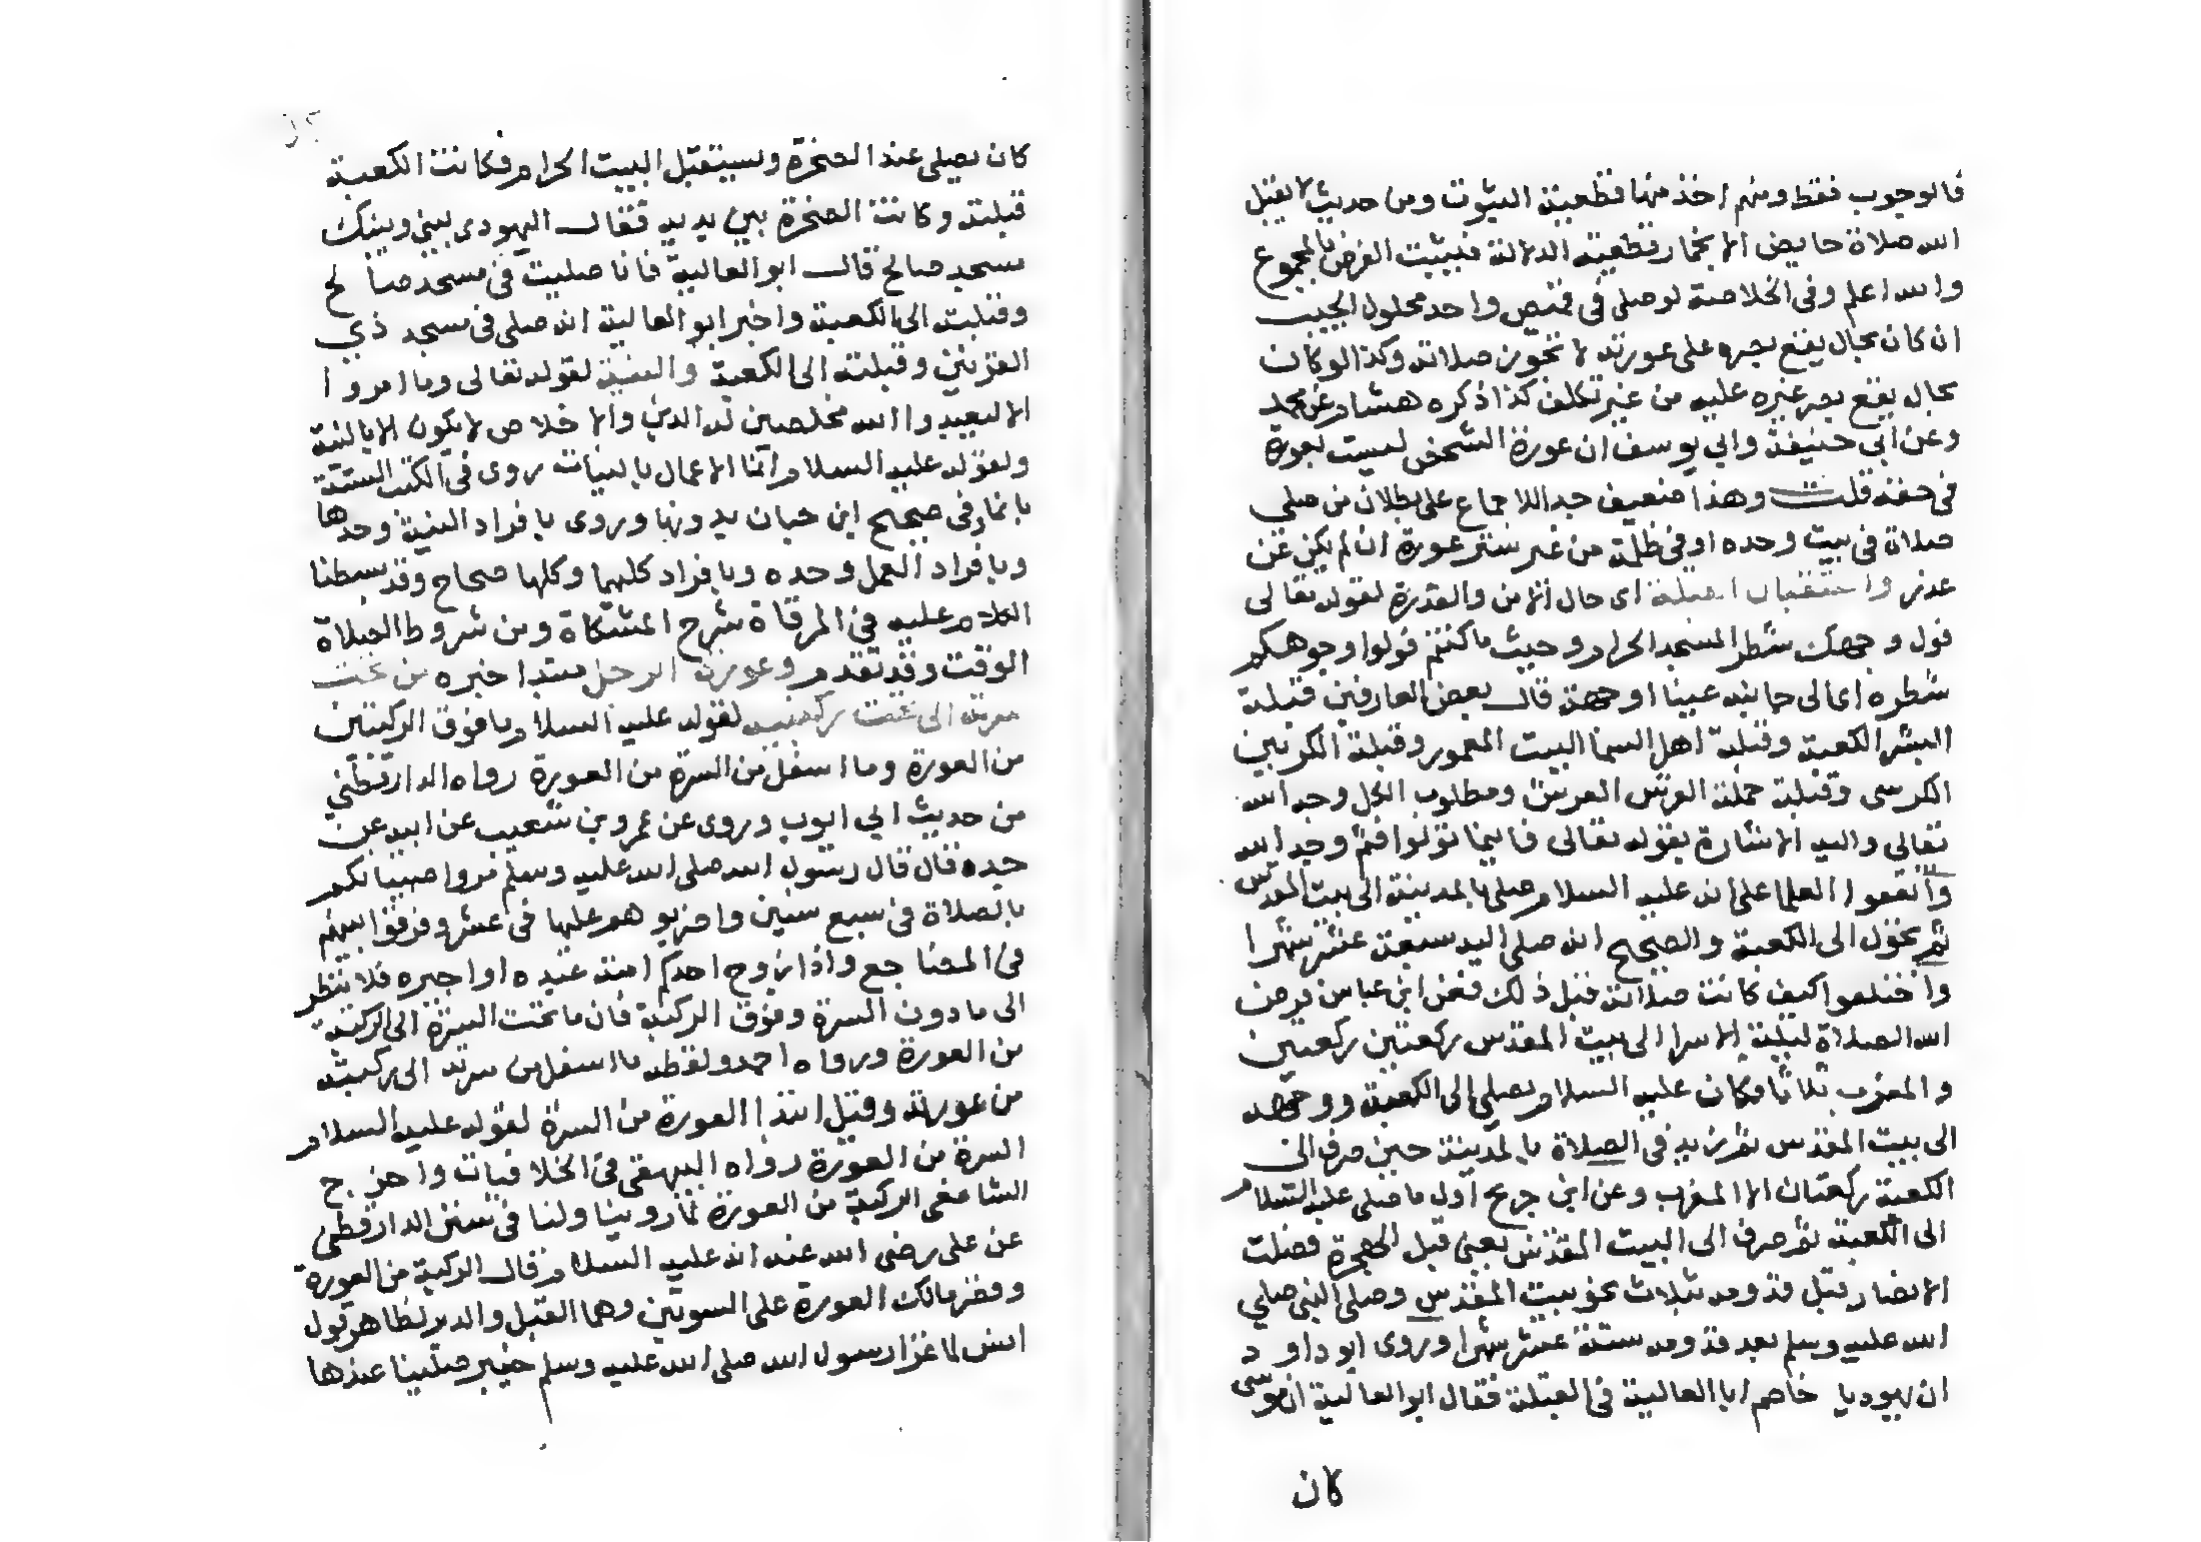 فالوجوب فقط ومنهم اخذ منها قطعية الثبوت ومن حديث لا يقبل
الله صلاة حايض الا بخمار قطعية الدلالة فيثبت الفرض بالمجموع
والله اعلم وفي الخلاصة لو صلى في قميص واحد محلول الجيب
ان كان بحال يقع بصره على عورته لا تجوز صلاته وكذا لو كان
بحال يقع بصر غيره عليه من غير تكلف كذا ذكره هشام عن محمد
وعن ابي حنيفة وابي يوسف ان عورة الشخص ليست بعورة
في حقه قلت وهذا ضعيف جدا للاجماع على بطلان من صلى
صلاة في بيت وحده او في ظلمة من غير ستر عورة ان لم يكن عن
عذر واستقبال القبلة اى حال الامن والقدرة لقوله تعالى
فول وجهك شطر المسجد الحرام وحيث ما كنتم فولوا وجوهكم
شطره اى الى جانبه عينا او جهة قال بعض العارفين قبلة
البشر الكعبة وقبلة اهل السما البيت المعمور وقبلة الكروبيين
الكرسى وقبلة حملة العرش العرش ومطلوب الكل وجه الله
تعالى واليه الاشارة بقوله تعالى فاينما تولوا فثم وجه الله
واتفقوا العلما على انه عليه السلام صلى بالمدينة الى بيت المقدس
ثم تحول الى الكعبة والصحيح انه صلى اليه سبعة عشر شهرا
واختلفوا كيف كانت صلاته قبل ذلك فعن ابن عباس فرض
الله الصلاة ليلة الاسرا الى بيت المقدس ركعتين ركعتين
والمغرب ثلاثا فكان عليه السلام يصلى الى الكعبة ووجهه
الى بيت المقدس ثم زيد في الصلاة بالمدينة حين صرف الى
الكعبة ركعتان الا المغرب وعن ابن جريج اول ما صلى عليه السلام
الى الكعبة ثم صرف الى البيت المقدس يعني قبل الهجرة فصلت
الانصار قبل قدومه بثلاث نحو بيت المقدس وصلى النبي صلى
الله عليه وسلم بعد قدومه ستة عشر شهرا وروى ابو داود
ان يهوديا خاصم ابا العالية في القبلة فقال ابو العالية ان موسى
كان
كان يصلى عند الصخرة ويستقبل البيت الحرام فكانت الكعبة
قبلته وكانت الصخرة بين يديه فقال اليهودى بيني وبينك
مسجد صالح قال ابو العالية فانا صليت في مسجد صالح
وقبلته الى الكعبة واخبر ابو العالية انه صلى في مسجد ذي
القرنين وقبلته الى الكعبة والنية لقوله تعالى وما امروا
الا ليعبدوا الله مخلصين له الدين والاخلاص لا يكون الا بالنية
ولقوله عليه السلام انما الاعمال بالنيات روى في الكتب الستة
بانما وفي صحيح ابن حبان بدونها وروى بافراد النية وحدها
وبافراد العمل وحده وبافراد كليهما وكلها صحاح وقد بسطنا
الكلام عليه في المرقاة شرح المشكاة ومن شروط الصلاة
الوقت وقد تقدم وعورة الرجل مبتدا خبره من تحت
سرته الى تحت ركبتيه لقوله عليه السلام ما فوق الركبتين
من العورة وما اسفل من السرة من العورة رواه الدارقطني
من حديث ابي ايوب وروى عن عمرو بن شعيب عن ابيه عن
جده قال قال رسول الله صلى الله عليه وسلم مروا صبيانكم
بالصلاة في سبع سنين واضربوهم عليها في عشر وفرقوا بينهم
في المضاجع واذا زوج احدكم امته عبده او اجيره فلا تنظر
الى ما دون السرة وفوق الركبة فان ما تحت السرة الى الركبة
من العورة ورواه احمد ولفظه ما اسفل من سرته الى ركبته
من عورته وقيل ابتدا العورة من السرة لقوله عليه السلام
السرة من العورة رواه البيهقى في الخلافيات واخرج
الشافعى الركبة من العورة لما روينا ولنا في سنن الدارقطى
عن على رضى الله عنه انه عليه السلام قال الركبة من العورة
وقصر مالك العورة على السوتين وهما القبل والدبر لظاهر قول
انس لما غزا رسول الله صلى الله عليه وسلم خيبر صلينا عندها